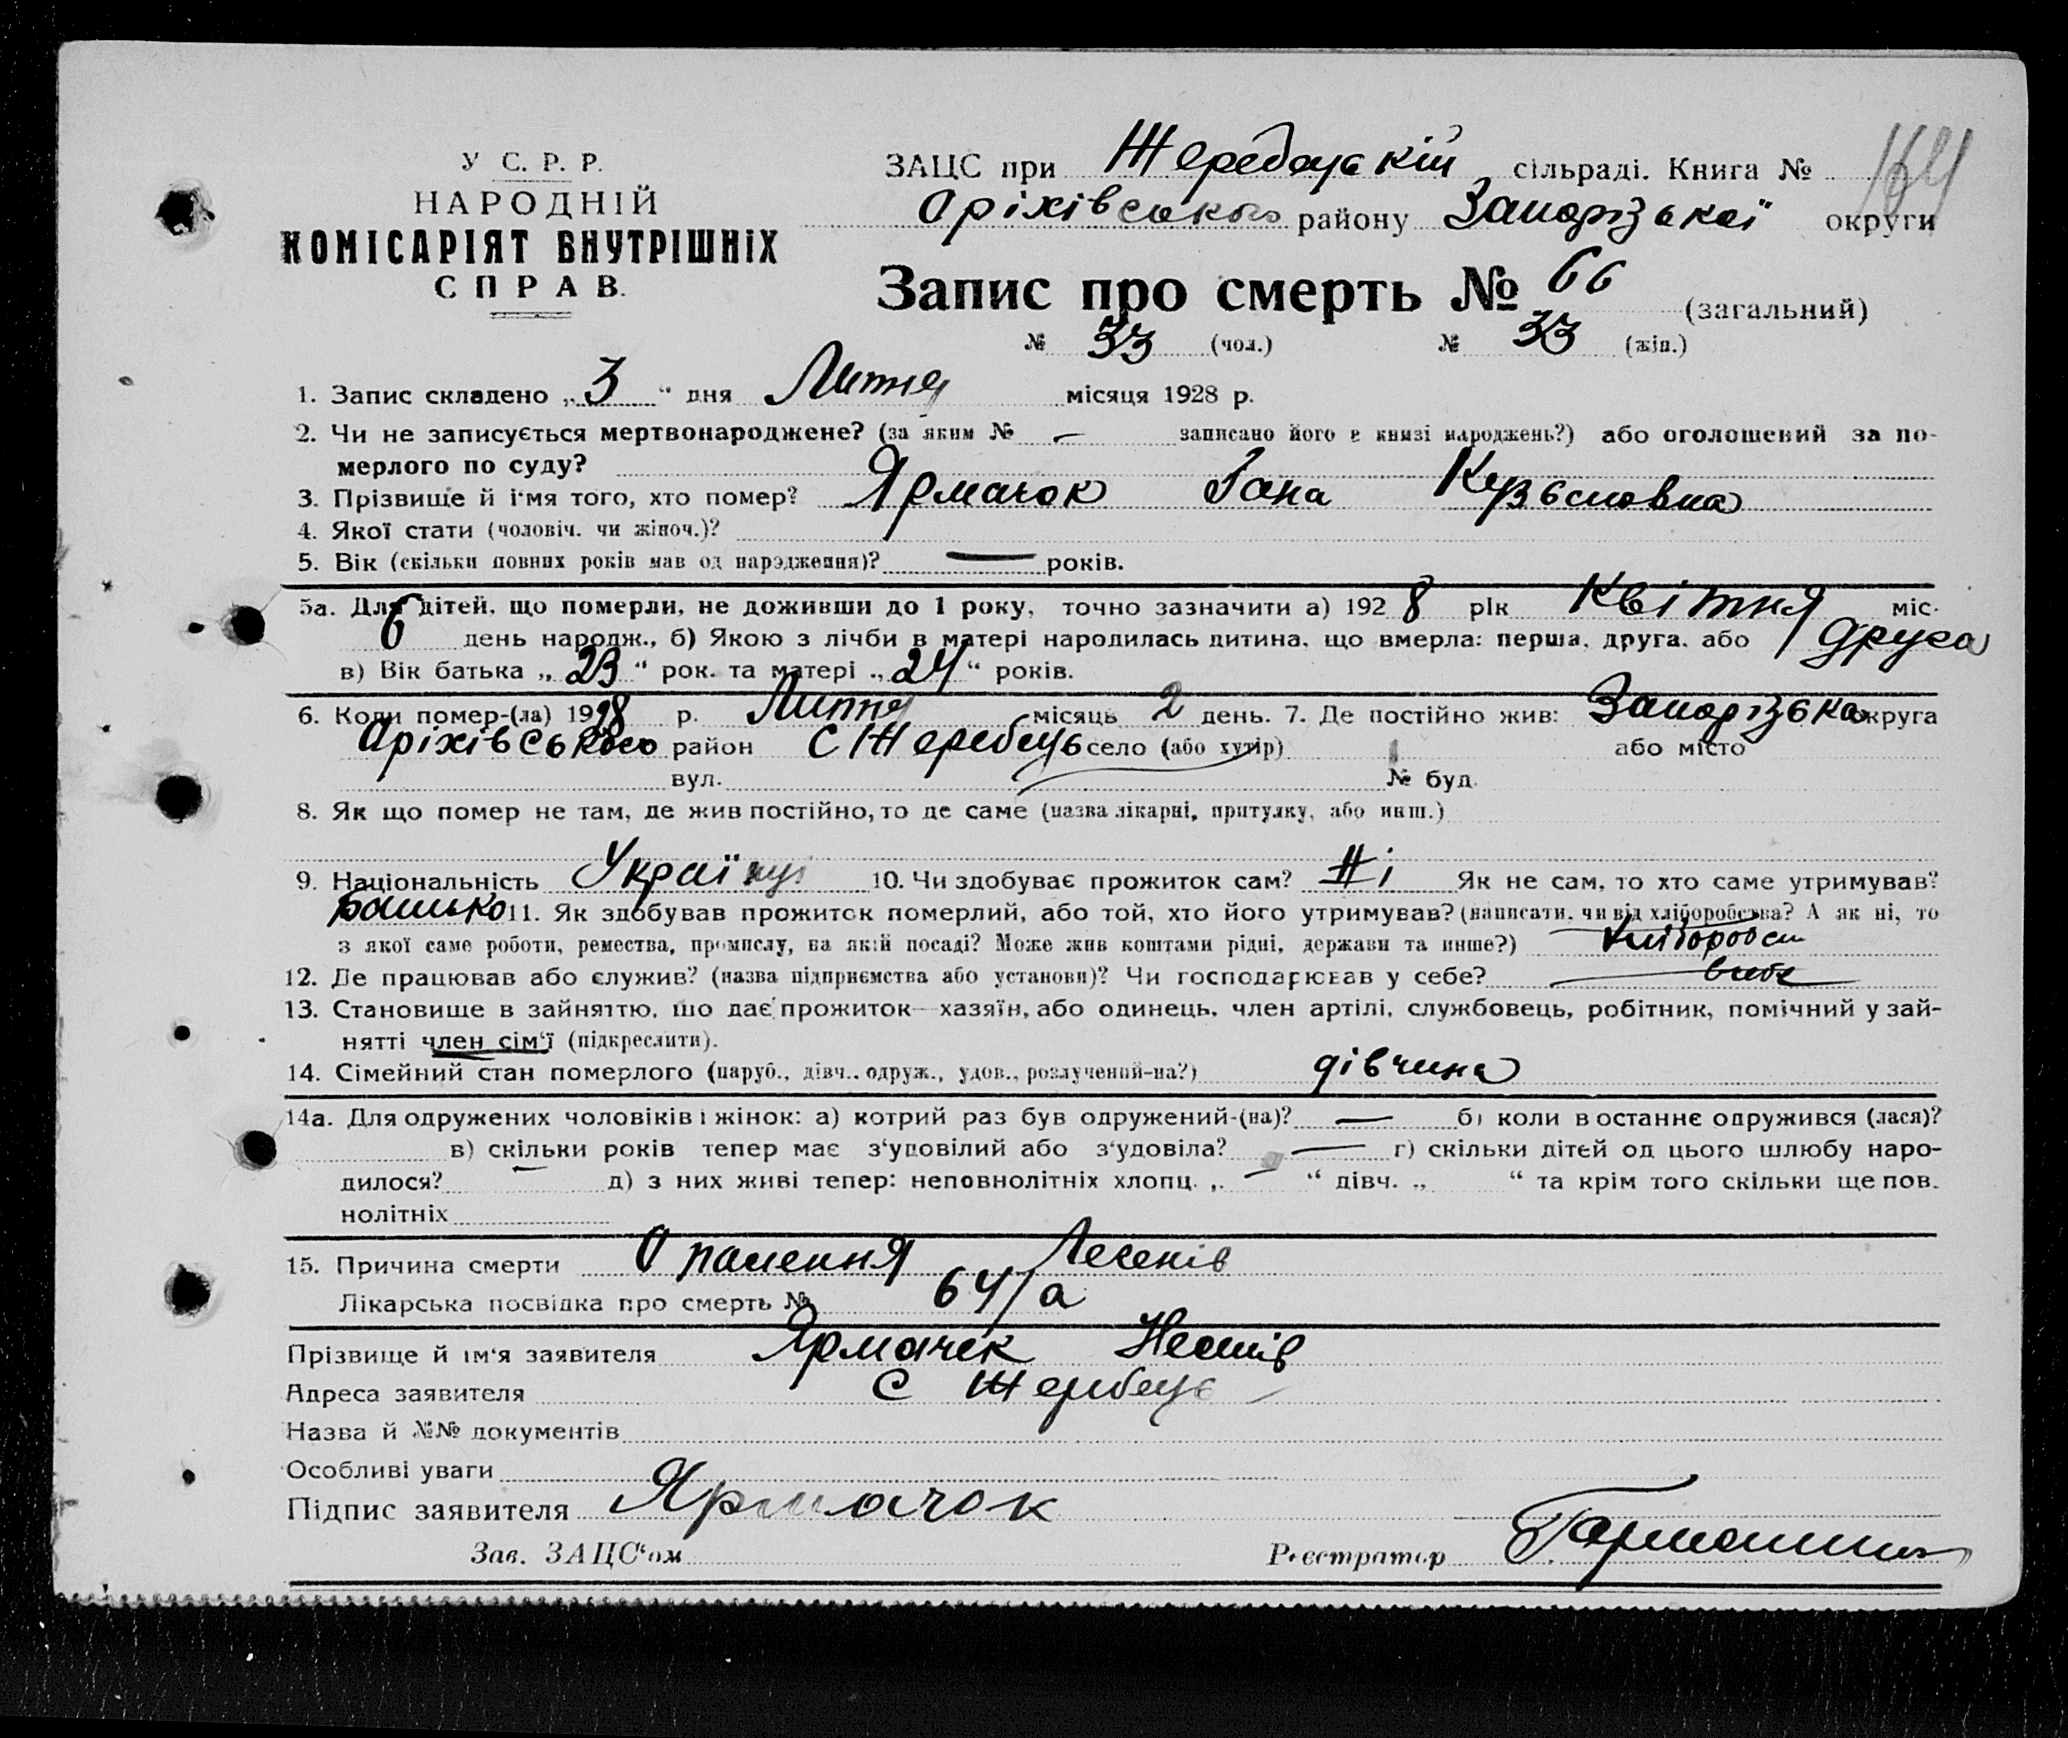 У С. Р. Р.
НАРОДНІЙ
КОМІСАРІЯТ ВНУТРІШНІХ
СПРАВ.
ЗАЦС при Жеребецькій сільраді. Книга № 164
Оріхівського району Запорізької округи
Запис про смерть № 66 (загальний)
№ 33 (чол.) № 33 (жін.)
1. Запис складено „ 3 “ дня Липня місяця 1928 р.
2. Чи не записується мертвонароджене? (за яким № — записано його в книзі народжень?) або оголошений за по-
мерлого по суду?
3. Прізвище й ім'я того, хто помер? Ярмачок Кузьмовна
4. Якої стати (чоловіч. чи жіноч.)?
5. Вік (скільки повних років мав од народження)? — років.
5а. Для дітей, що померли, не доживши до 1 року, точно зазначити а) 1928 рік Квітня міс.
6 день народж., б) Якою з лічби в матері народилась дитина, що вмерла: перша, друга, або друга
в) Вік батька „ 23 “ рок. та матері „ 24 “ років.
6. Коли помер-(ла) 1928 р. Липня місяць 2 день. 7. Де постійно жив: Запорізька округа
Оріхівського район С Жеребець село (або хутір) або місто
вул. № буд.
8. Як що помер не там, де жив постійно, то де саме (назва лікарні, притулку, або инш.)
9. Національність Україн 10. Чи здобуває прожиток сам? Ні Як не сам, то хто саме утримував?
Батько 11. Як здобував прожиток померлий, або той, хто його утримував? (написати, чи від хліборобства? А як ні, то
з якої саме роботи, ремества, промислу, на якій посаді? Може жив коштами рідні, держави та инше?) Хлібороб
12. Де працював або служив? (назва підприємства або установи)? Чи господарював у себе? в себе
13. Становище в зайняттю, що дає прожиток—хазяїн, або одинець, член артілі, службовець, робітник, помічний у зай-
нятті член сім'ї (підкреслити).
14. Сімейний стан померлого (паруб., дівч., одруж., удов., розлучений-на?) дівчина
14а. Для одружених чоловіків і жінок: а) котрий раз був одружений-(на)? — б) коли в останнє одружився (лася)?
в) скільки років тепер має з'удовілий або з'удовіла? — г) скільки дітей од цього шлюбу наро-
дилося? — д) з них живі тепер: неповнолітніх хлопц. „ — “ дівч. „ “ та крім того скільки ще пов.
нолітніх
15. Причина смерти Опалення Легенів
Лікарська посвідка про смерть № 64/а
Прізвище й ім'я заявителя Ярмачек
Адреса заявителя С Жеребець
Назва й №№ документів
Особливі уваги
Підпис заявителя Ярмачок
Зав. ЗАЦС'ом Реєстратор